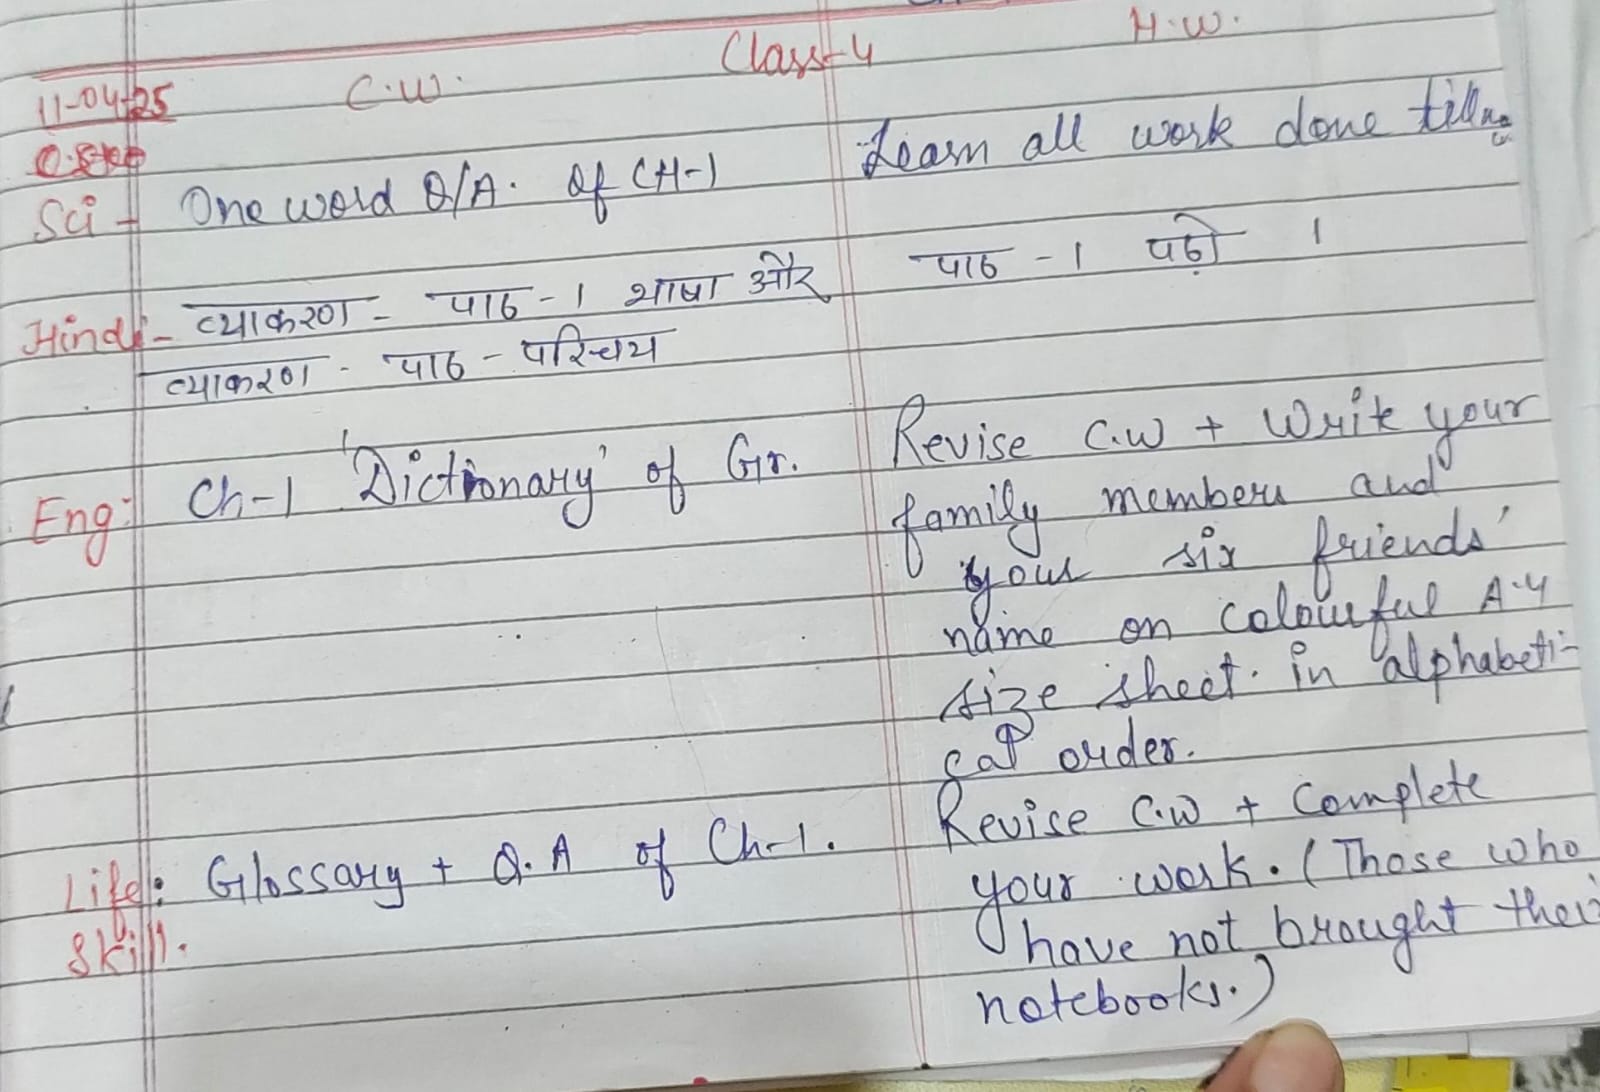 Class-4
H.W.
11-04-25
C.W.
Sci - One word Q/A. of CH-1
Learn all work done till
Hindi - व्याकरण - पाठ - 1 भाषा और
पाठ - 1 पढ़ो ।
व्याकरण - पाठ - परिचय
Eng: Ch-1 'Dictionary' of Gr.
Revise C.W + Write your
family members and
your six friends'
name on colourful A-4
size sheet. in alphabeti-
cal order.
Life: Glossary + Q.A of Ch-1.
Skill.
Revise C.W + Complete
your work. (Those who
have not brought their
notebooks.)